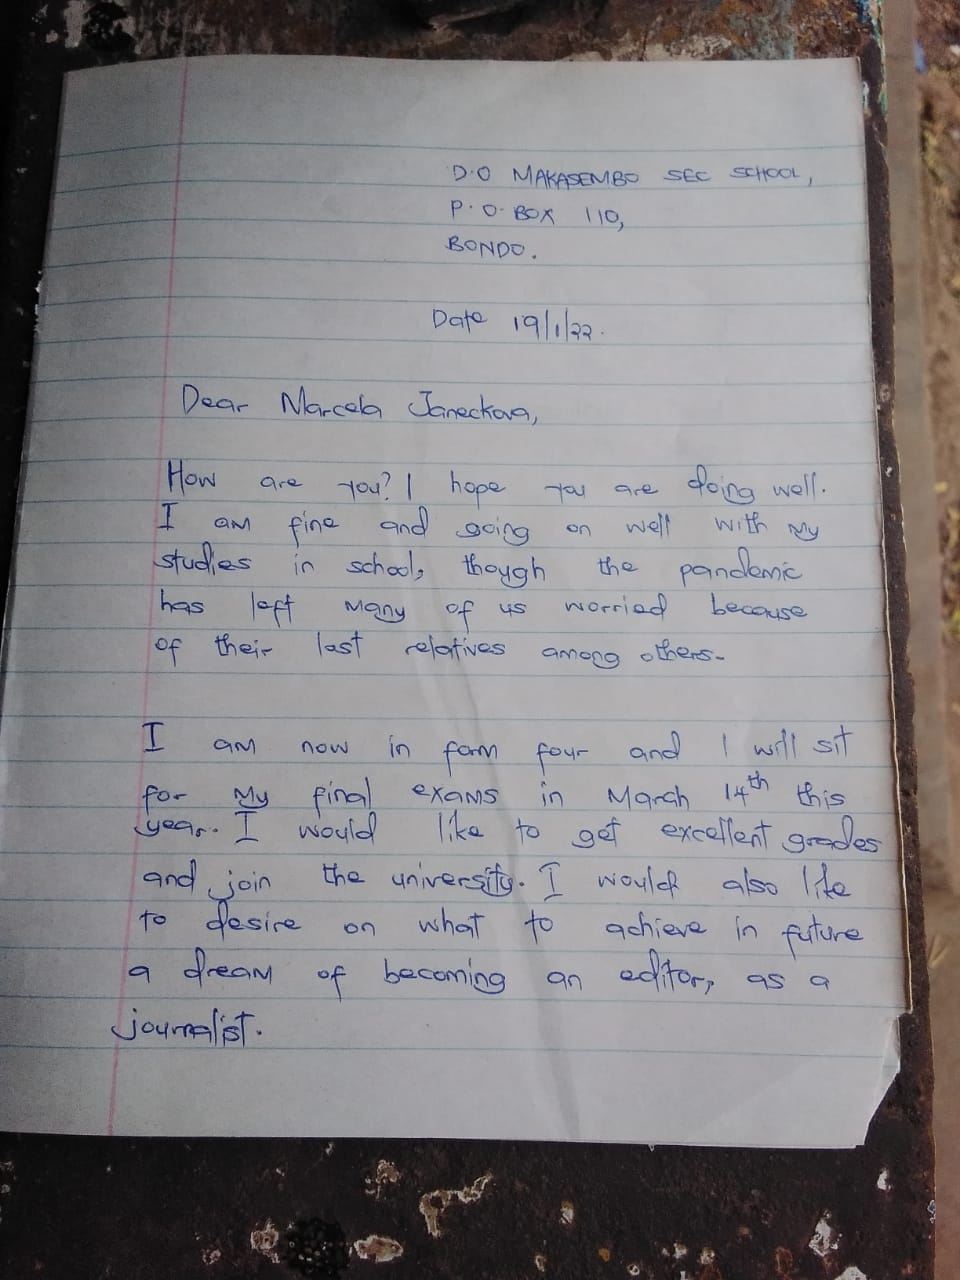 D.O MAKASEMBO SEC SCHOOL,
P.O. BOX 110,
BONDO.
Date 19/1/22.
Dear Marcela Janeckova,
How are you? I hope you are doing well.
I am fine and going on well with my
studies in school, though the pandemic
has left many of us worried because
of their lost relatives among others.
I am now in form four and I will sit
for my final exams in March 14th this
year. I would like to get excellent grades
and join the university. I would also like
to desire on what to achieve in future
a dream of becoming an editor, as a
journalist.